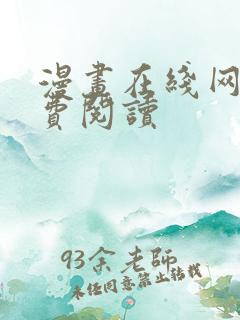 漫畫在綫网
費閱讀
93余老師
未任同意禁止转載